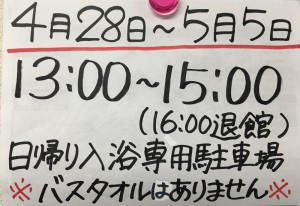 4月28日～5月5日
13:00～15:00
(16:00退館)
日帰り入浴専用駐車場
※バスタオルはありません※